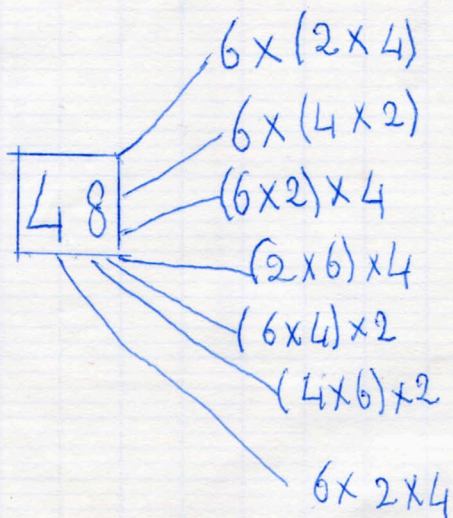 6 × (2 × 4)
6 × (4 × 2)
48
(6 × 2) × 4
(2 × 6) × 4
(6 × 4) × 2
(4 × 6) × 2
6 × 2 × 4